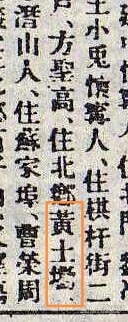 王小兎懷寗人、住棋杆街二
、方聖高、住北鄉黃土壪、
潛山人、住蘇家埠、曹榮周